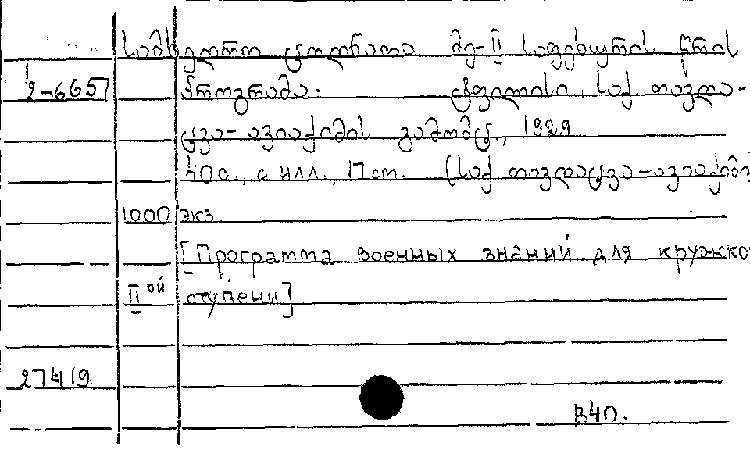 სამხედრო ცოდნათა მე-II საფეხურის წრის
2-6657 პროგრამა. ტფილისი, საქ. თავდა-
ცვა-ავიაქიმის გამომც., 1929
40 с., с илл., 17 cm. (საქ. თავდაცვა-ავიაქიმი
1000 экз
[Программа военных знаний для кружко
II ой ступени]
27419